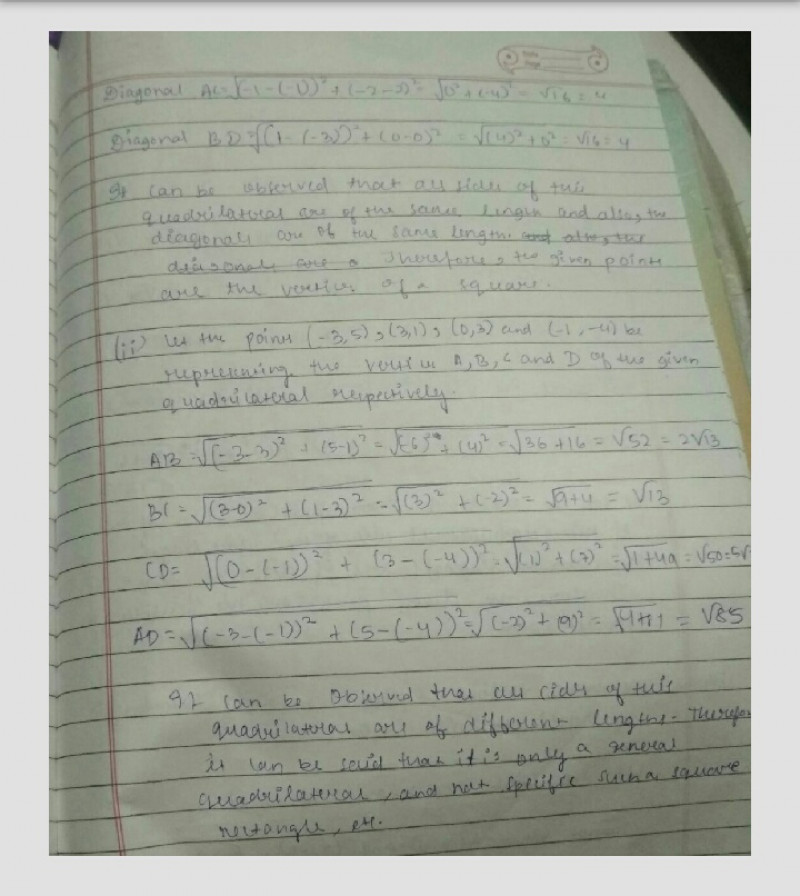 Diagonal AC = √(-1-(-1))² + (-2-2)² = √0² + (-4)² = √16 = 4
Diagonal BD = √(1-(-3))² + (0-0)² = √(4)² + 0² = √16 = 4
It can be observed that all sides of this
quadrilateral are of the same length and also, the
diagonals are of the same length. and also, the
diagonals are Therefore, the given points
are the vertices of a square.
(ii) let the points (-3,5), (3,1), (0,3) and (-1,-4) be
representing the vertices A, B, C and D of the given
quadrilateral respectively.
AB = √(-3-3)² + (5-1)² = √(-6)² + (4)² = √36+16 = √52 = 2√13
BC = √(3-0)² + (1-3)² = √(3)² + (-2)² = √9+4 = √13
CD = √(0-(-1))² + (3-(-4))² = √(1)² + (7)² = √1+49 = √50 = 5√
AD = √(-3-(-1))² + (5-(-4))² = √(-2)² + (9)² = √4+81 = √85
It can be observed that all sides of this
quadrilateral are of different lengths. Therefor
it can be said that it is only a general
quadrilateral, and not specific such a square
rectangle, etc.